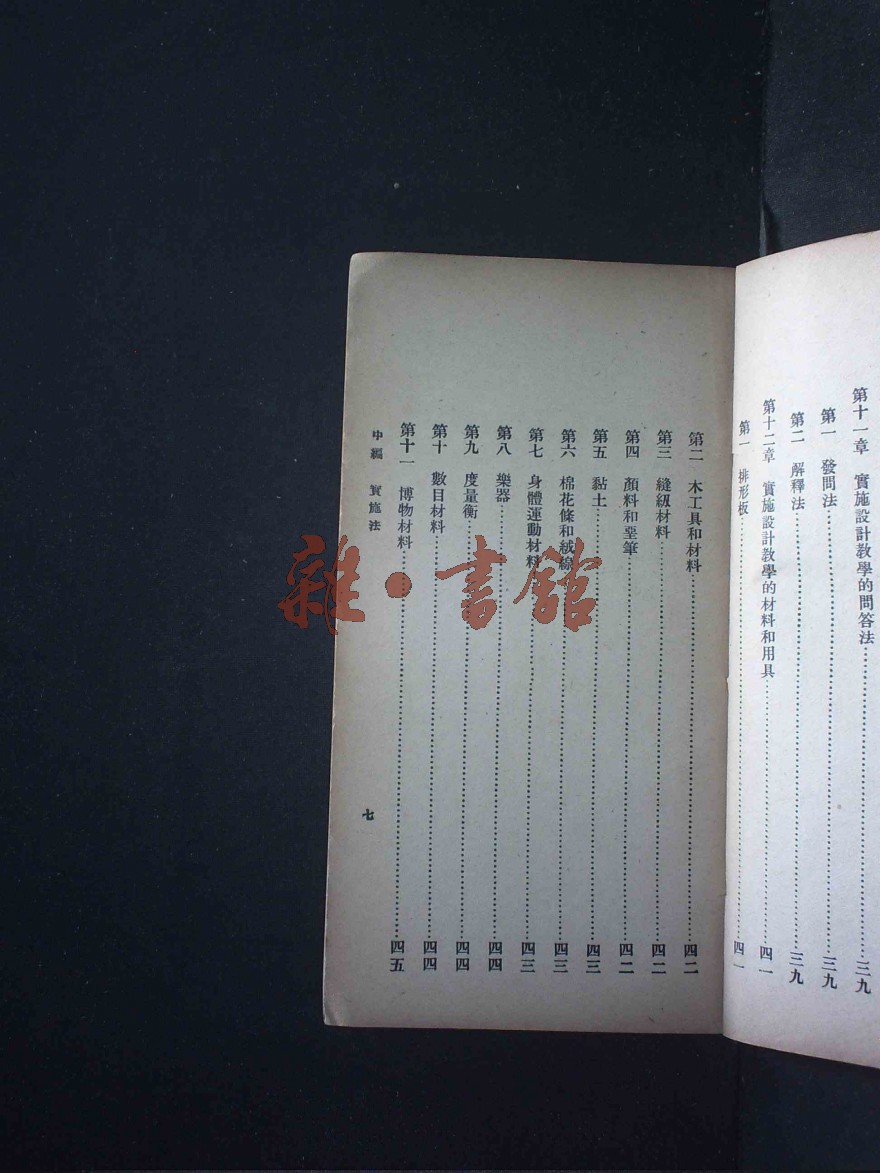 第十一章　實施設計教學的問答法……三九
第一　發問法……三九
第二　解釋法……三九
第十二章　實施設計教學的材料和用具……四一
第一　排形板……四一
第二　木工具和材料……四二
第三　縫級材料……四二
第四　顏料和堊筆……四二
第五　黏土……四三
第六　棉花條和絨線……四三
第七　身體運動材料……四三
第八　樂器……四四
第九　度量衡……四四
第十　數目材料……四四
第十一　博物材料……四五
中編　實施法
七
雜·書館